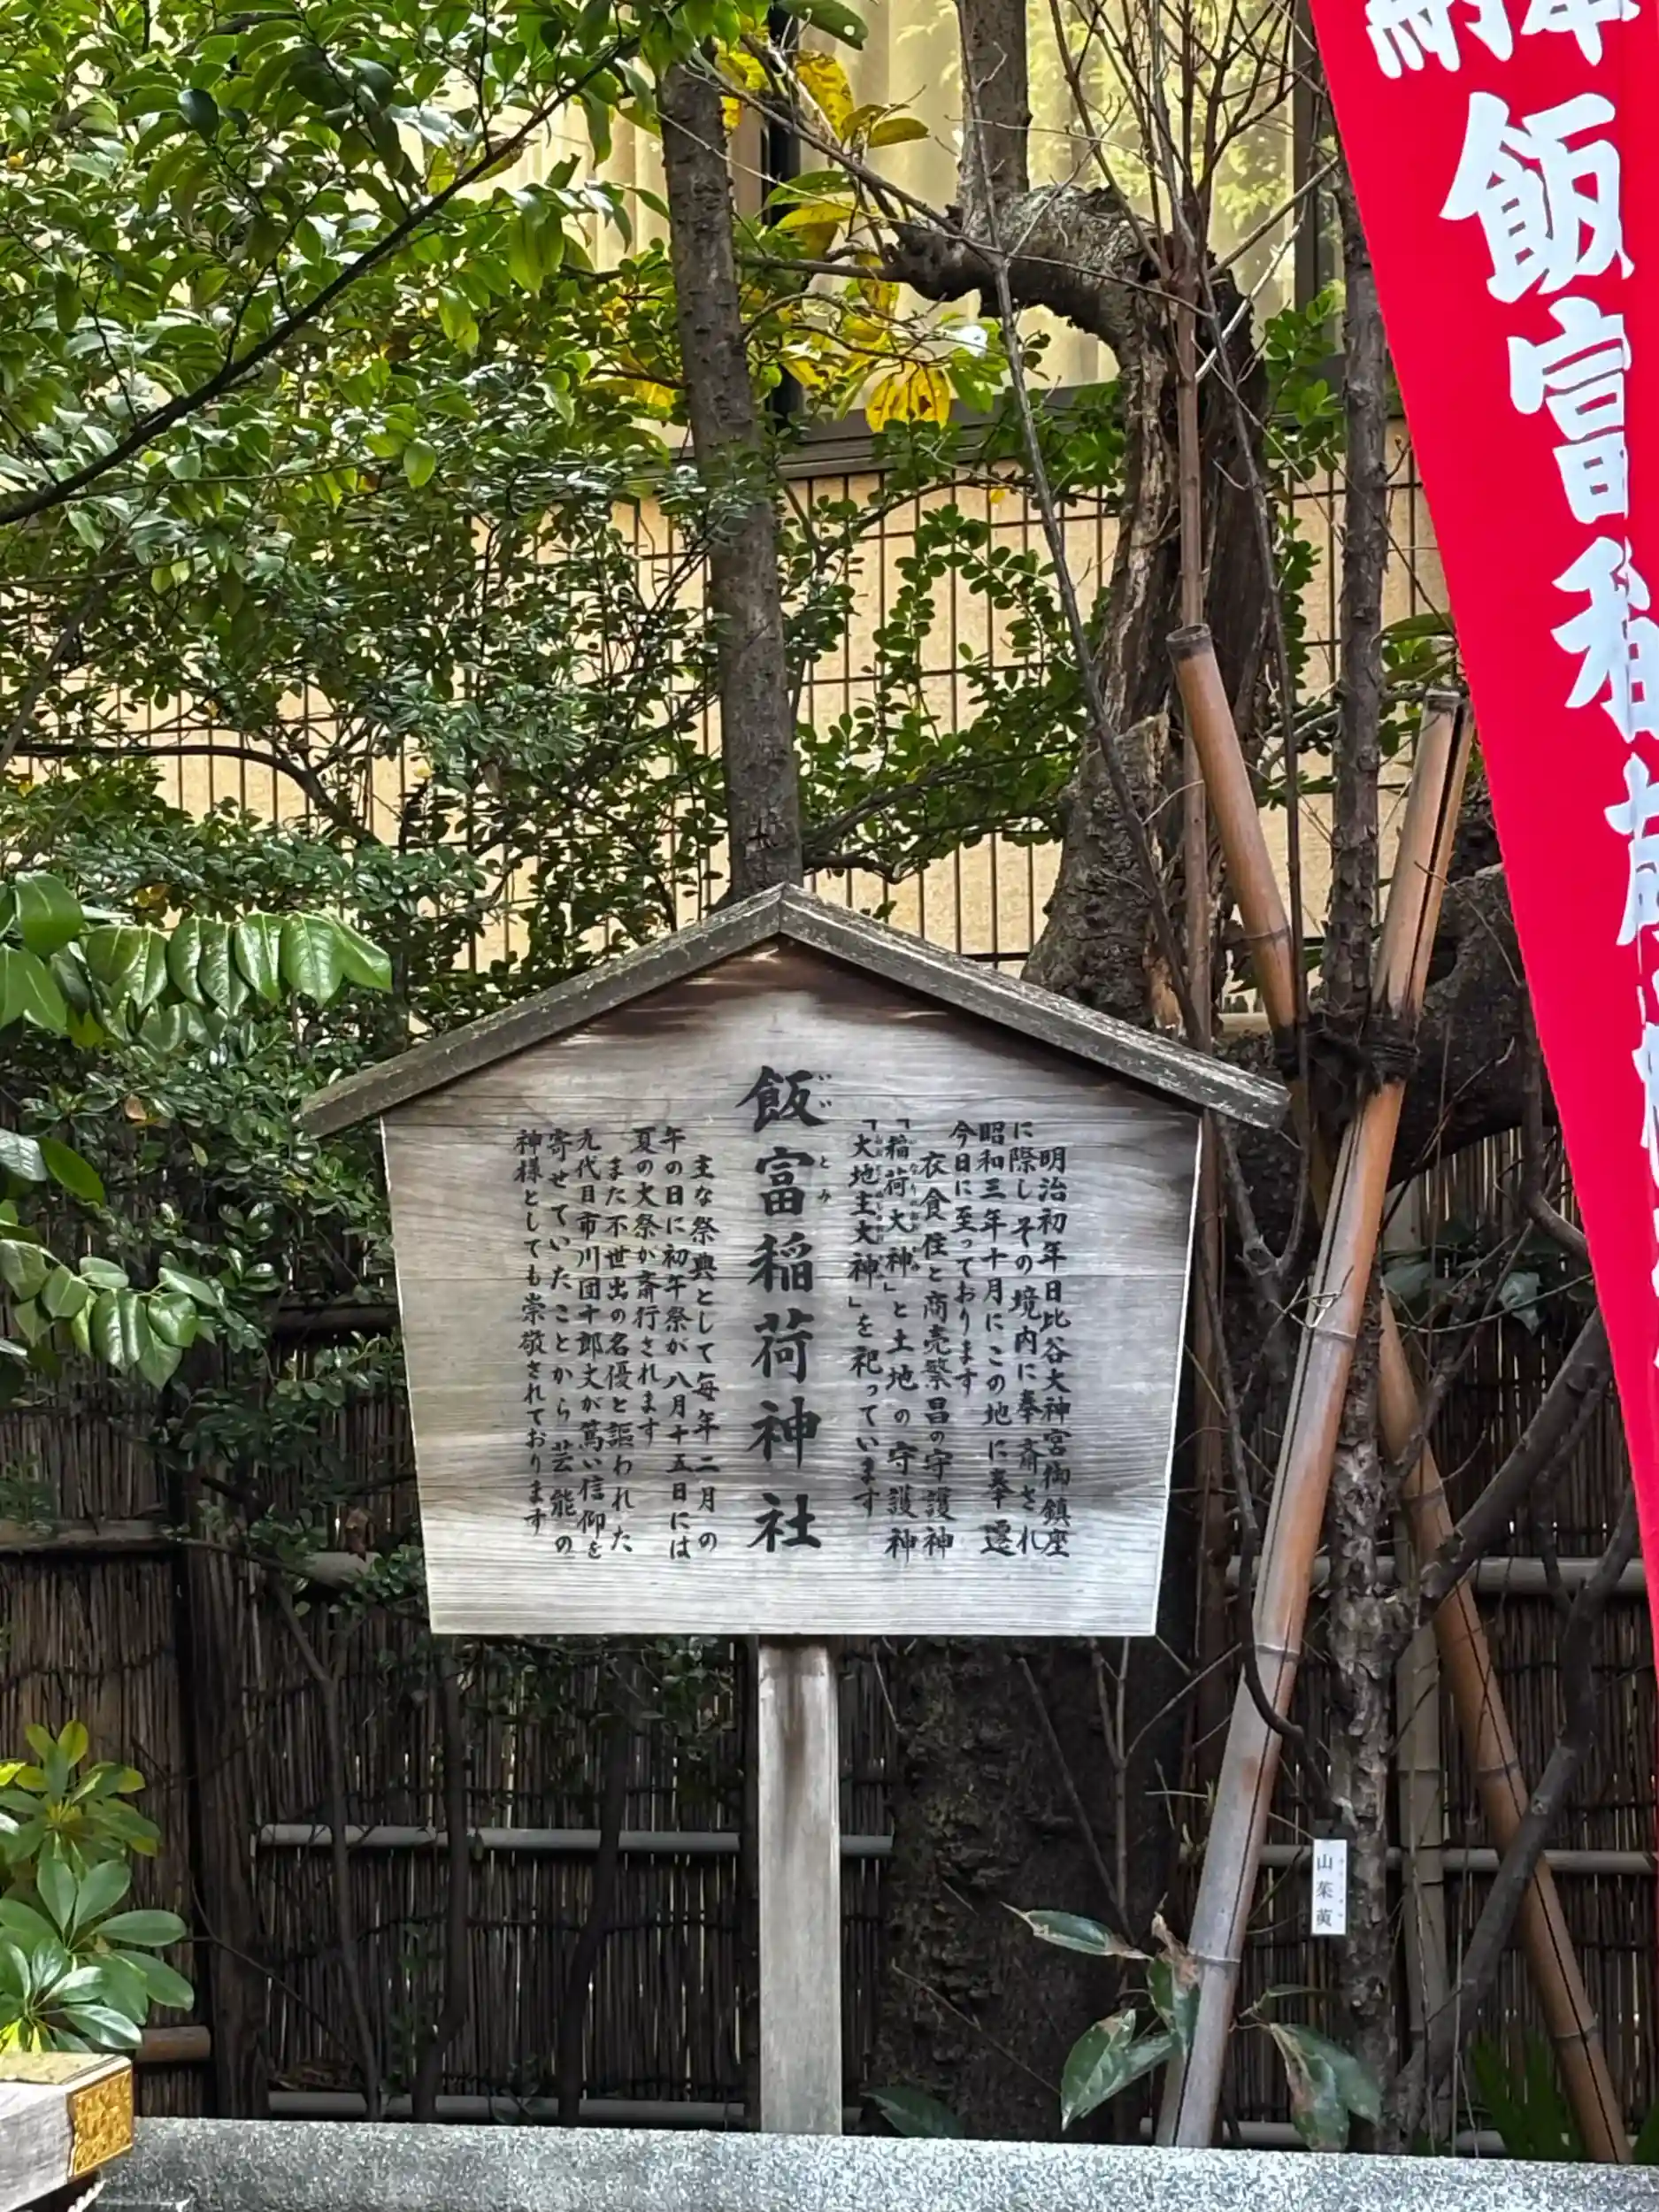 奉納
飯富稲荷神社
明治初年日比谷大神宮御鎮座
に際し その境内に奉斎され
昭和三年十月にこの地に奉遷
今日に至っております
衣食住と商売繁昌の守護神
「稲荷大神」と土地の守護神
「大地主大神」を祀っています
飯富稲荷神社
いいとみ
主な祭典として毎年二月の
午の日に初午祭が 八月十五日には
夏の大祭が斎行されます
また不世出の名優と謳われた
九代目市川団十郎丈が篤い信仰を
寄せていたことから 芸能の
神様としても崇敬されております
山茱萸